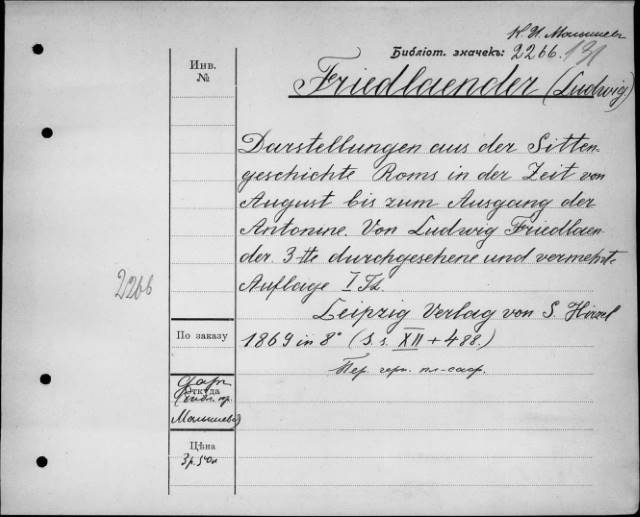 К. И. Малышев
Библіот. значекъ: 2266. 131
Инв.
№
Friedlaender (Ludwig)
Darstellungen aus der Sitten-
geschichte Roms in der Zeit von
August bis zum Ausgang der
Antonine. Von Ludwig Friedlaen-
der. 3-tte durchgesehene und vermehrte
Auflage I Th.
2266
Leipzig Verlag von S. Hirzel
По заказу
1869 in 8° (S. s. XII + 488.)
Пер. черн. пл-саф.
Откуда
Малышева
Цѣна
3 р. 50 к